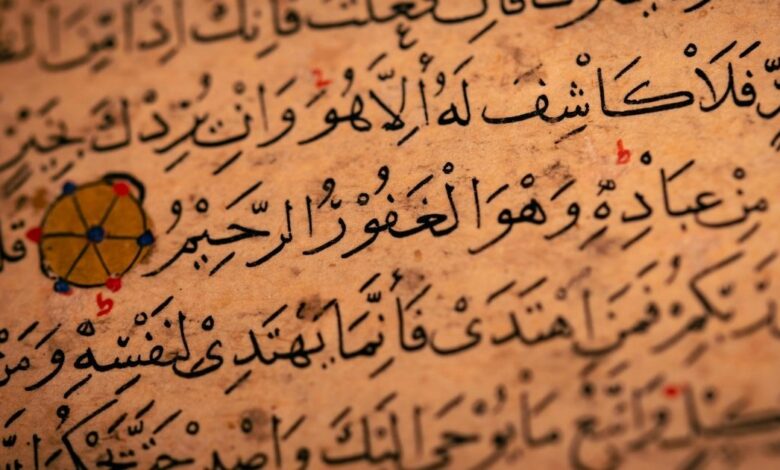 فَاِنْ فَعَلْتَ فَاِنَّكَ اِذًا مِنَ
فَلَا كَاشِفَ لَهُ اِلَّا هُوَ وَاِنْ يُرِدْكَ بِخَيْرٍ
مِنْ عِبَادِهِ وَهْوَ الْغَفُوْرُ الرَّحِيْمُ
رَبِّكُمْ فَمَنِ اهْتَدَىْ فَاِنَّمَا يَهْتَدِىْ لِنَفْسِهِ وَمَنْ
وَاتَّبِعْ مَا يُوْحَى اِلَيْكَ وَاصْبِرْ حَتَّى يَحْكُمَ